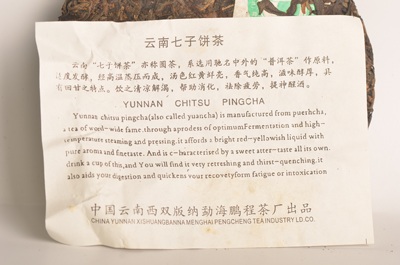 云南七子饼茶
云南“七子饼茶”亦称圆茶，系选用驰名中外的“普洱茶”作原料，
适度发酵，经高温蒸压而成，汤色红黄鲜亮，香气纯高，滋味醇厚，具
有回甘之特点，饮之清凉解渴，帮助消化，祛除疲劳，提神醒酒。
YUNNAN CHITSU PINGCHA
Yunnan chitsu pingcha(also called yuancha) is manufactured from puerhcha,
a tea of word-wide fame.through aproders of optimumFermentation and high-
temperature steaming and pressing.it affords a bright red-yellowish liquid with
pure aroma and finetaste. And is c-baracterised by a sweet atter-taste all its own.
drink a cup of tha,and You will find it very refreshing and thirst-quenching.it
also aids your digestion and quickens your recoveryform fatigue or intoxication
中国云南西双版纳勐海鹏程茶厂出品
CHINA YUNNAN XISHUANGBANNA MENGHAI PENGCHENG TEA INDUSTRY LD.CO.